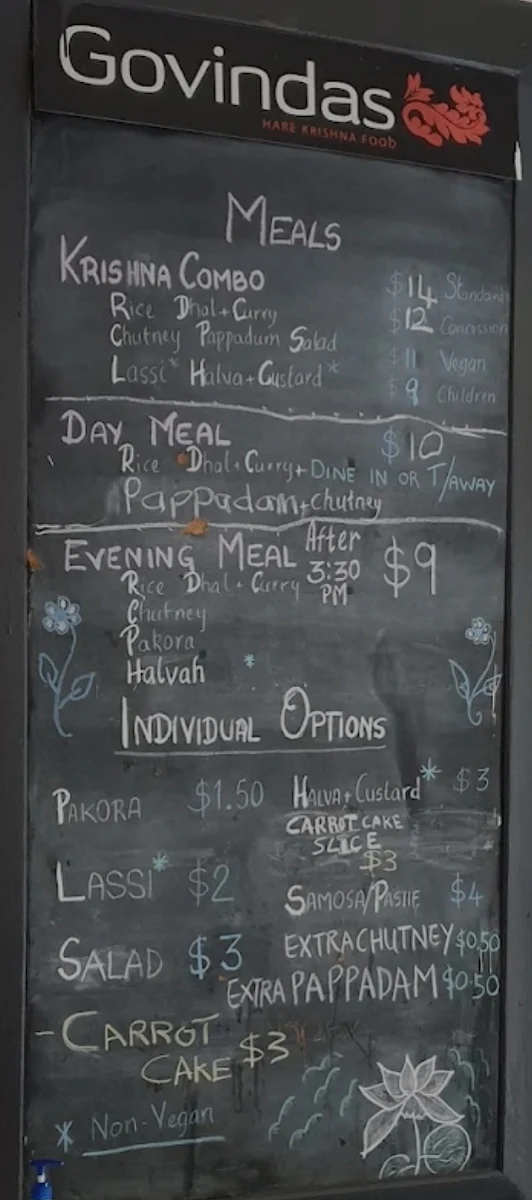 Govindas
HARE KRISHNA FOOD
MEALS
KRISHNA COMBO $14 Standard
Rice Dhal + Curry $12 Concession
Chutney Pappadum Salad
Lassi* Halva + Custard* $11 Vegan
$9 Children
DAY MEAL $10
Rice Dhal + Curry + DINE IN OR T/AWAY
Pappadam + Chutney
EVENING MEAL After 3:30 PM $9
Rice Dhal + Curry
Chutney
Pakora
Halvah *
INDIVIDUAL OPTIONS
PAKORA $1.50
HALVA + Custard* $3
CARROT CAKE
SLICE
$3
LASSI* $2
SAMOSA/PASTIE $4
SALAD $3
EXTRA CHUTNEY $0.50
EXTRA PAPPADAM $0.50
- CARROT
CAKE $3
* Non-Vegan